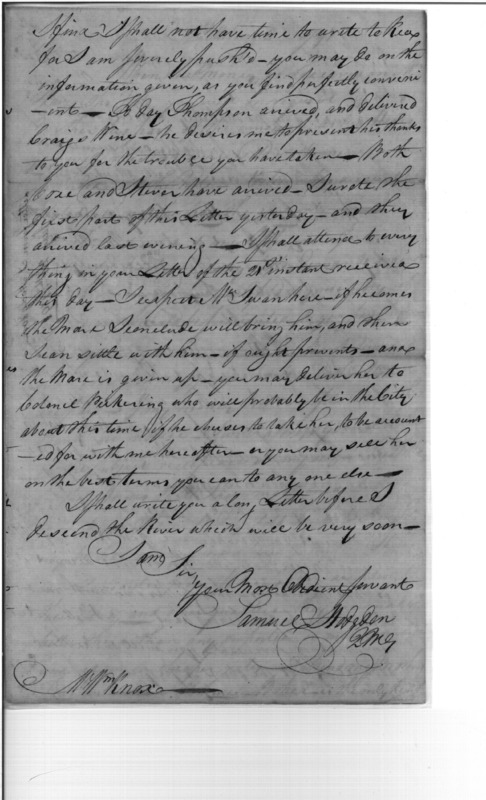 I find I shall not have time to write to Rea
for I am severely push'd – you may do on the
information given, as you find perfectly conveni
–ent – To day Thompson arrived, and delivered
Craigs Wine – he desires me to present his thanks
to you for the trouble you have taken – Both
Coxe and Stever have arrived – I wrote the
first part of this Letter yesterday – and they
arrived last evening – I shall attend to every
thing in your Letter of the 21st instant received
this day – I expect Mr Swan here – if he comes
the Mare I conclude will bring him, and then
I can settle with him – if ought prevents – and
the Mare is given up – you may deliver her to
Colonel Pickering who will probably be in the City
about this time, if he chuses to take her, to be account
–ed for with me hereafter – or you may sell her
on the best terms you can to any one else –
I shall write you a long Letter before I
descend the River which will be very soon –
I am Sir
Your Most Obedient Servant
Samuel Hodgdon
QMG
Mr Wm Knox